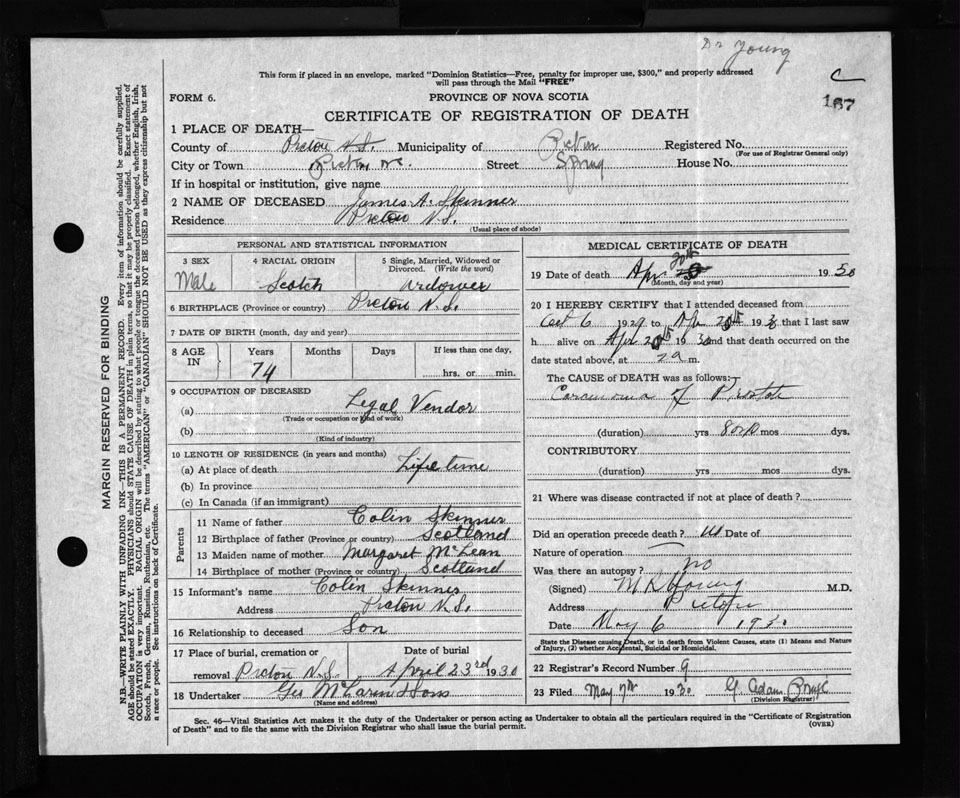 Dr Young
C
187
This form if placed in an envelope, marked "Dominion Statistics—Free, penalty for improper use, $300," and properly addressed
will pass through the Mail "FREE"
FORM 6.
PROVINCE OF NOVA SCOTIA
CERTIFICATE OF REGISTRATION OF DEATH
1 PLACE OF DEATH—
County of Pictou N.S. Municipality of Pictou Registered No.
(For use of Registrar General only)
City or Town Pictou N.S. Street Spring House No.
If in hospital or institution, give name
2 NAME OF DECEASED James A. Skinner
Residence Pictou N.S.
(Usual place of abode)
PERSONAL AND STATISTICAL INFORMATION
3 SEX Male
4 RACIAL ORIGIN Scotch
5 Single, Married, Widowed or Divorced. (Write the word) Widower
6 BIRTHPLACE (Province or country) Pictou N.S.
7 DATE OF BIRTH (month, day and year)
8 AGE IN Years 74 Months Days If less than one day, hrs. or min.
9 OCCUPATION OF DECEASED
(a) Legal Vendor
(Trade or occupation or kind of work)
(b)
(Kind of industry)
10 LENGTH OF RESIDENCE (in years and months)
(a) At place of death Life time
(b) In province
(c) In Canada (if an immigrant)
Parents
11 Name of father Colin Skinner
12 Birthplace of father (Province or country) Scotland
13 Maiden name of mother Margaret McLean
14 Birthplace of mother (Province or country) Scotland
15 Informant's name Colin Skinner
Address Pictou N.S.
16 Relationship to deceased Son
17 Place of burial, cremation or removal Pictou N.S.
Date of burial April 23rd 1930
18 Undertaker Geo McLaren & Sons
(Name and address)
MEDICAL CERTIFICATE OF DEATH
19 Date of death Apr 20th 1930
(Month, day and year)
20 I HEREBY CERTIFY that I attended deceased from
Oct 6 1929 to Apr 20th 1930 that I last saw
h alive on Apr 20th 1930 and that death occurred on the
date stated above, at 2 a m.
The CAUSE of DEATH was as follows:—
Carcinoma of Prostate
(duration) yrs 8 or 10 mos dys.
CONTRIBUTORY
(duration) yrs mos dys.
21 Where was disease contracted if not at place of death?
Did an operation precede death? no Date of
Nature of operation
Was there an autopsy? no
(Signed) M R Young M.D.
Address Pictou
Date May 6 1930
State the Disease causing Death, or in death from Violent Causes, state (1) Means and Nature
of Injury, (2) whether Accidental, Suicidal or Homicidal.
22 Registrar's Record Number 9
23 Filed May 7th 1930 G. Adam
(Division Registrar)
Sec. 46—Vital Statistics Act makes it the duty of the Undertaker or person acting as Undertaker to obtain all the particulars required in the "Certificate of Registration
of Death" and to file the same with the Division Registrar who shall issue the burial permit.
(OVER)
MARGIN RESERVED FOR BINDING
N.B.—WRITE PLAINLY WITH UNFADING INK—THIS IS A PERMANENT RECORD. Every item of information should be carefully supplied.
AGE should be stated EXACTLY. PHYSICIANS should STATE CAUSE OF DEATH in plain terms, so that it may be properly classified. Exact statement of
OCCUPATION is very important. RACIAL ORIGIN will be described by stating to what people or tongue the deceased person belonged, whether English, Irish,
Scotch, French, German, Russian, Ruthenian, etc. The terms "AMERICAN" or "CANADIAN" SHOULD NOT BE USED as they express citizenship but not
a race or people. See instructions on back of Certificate.